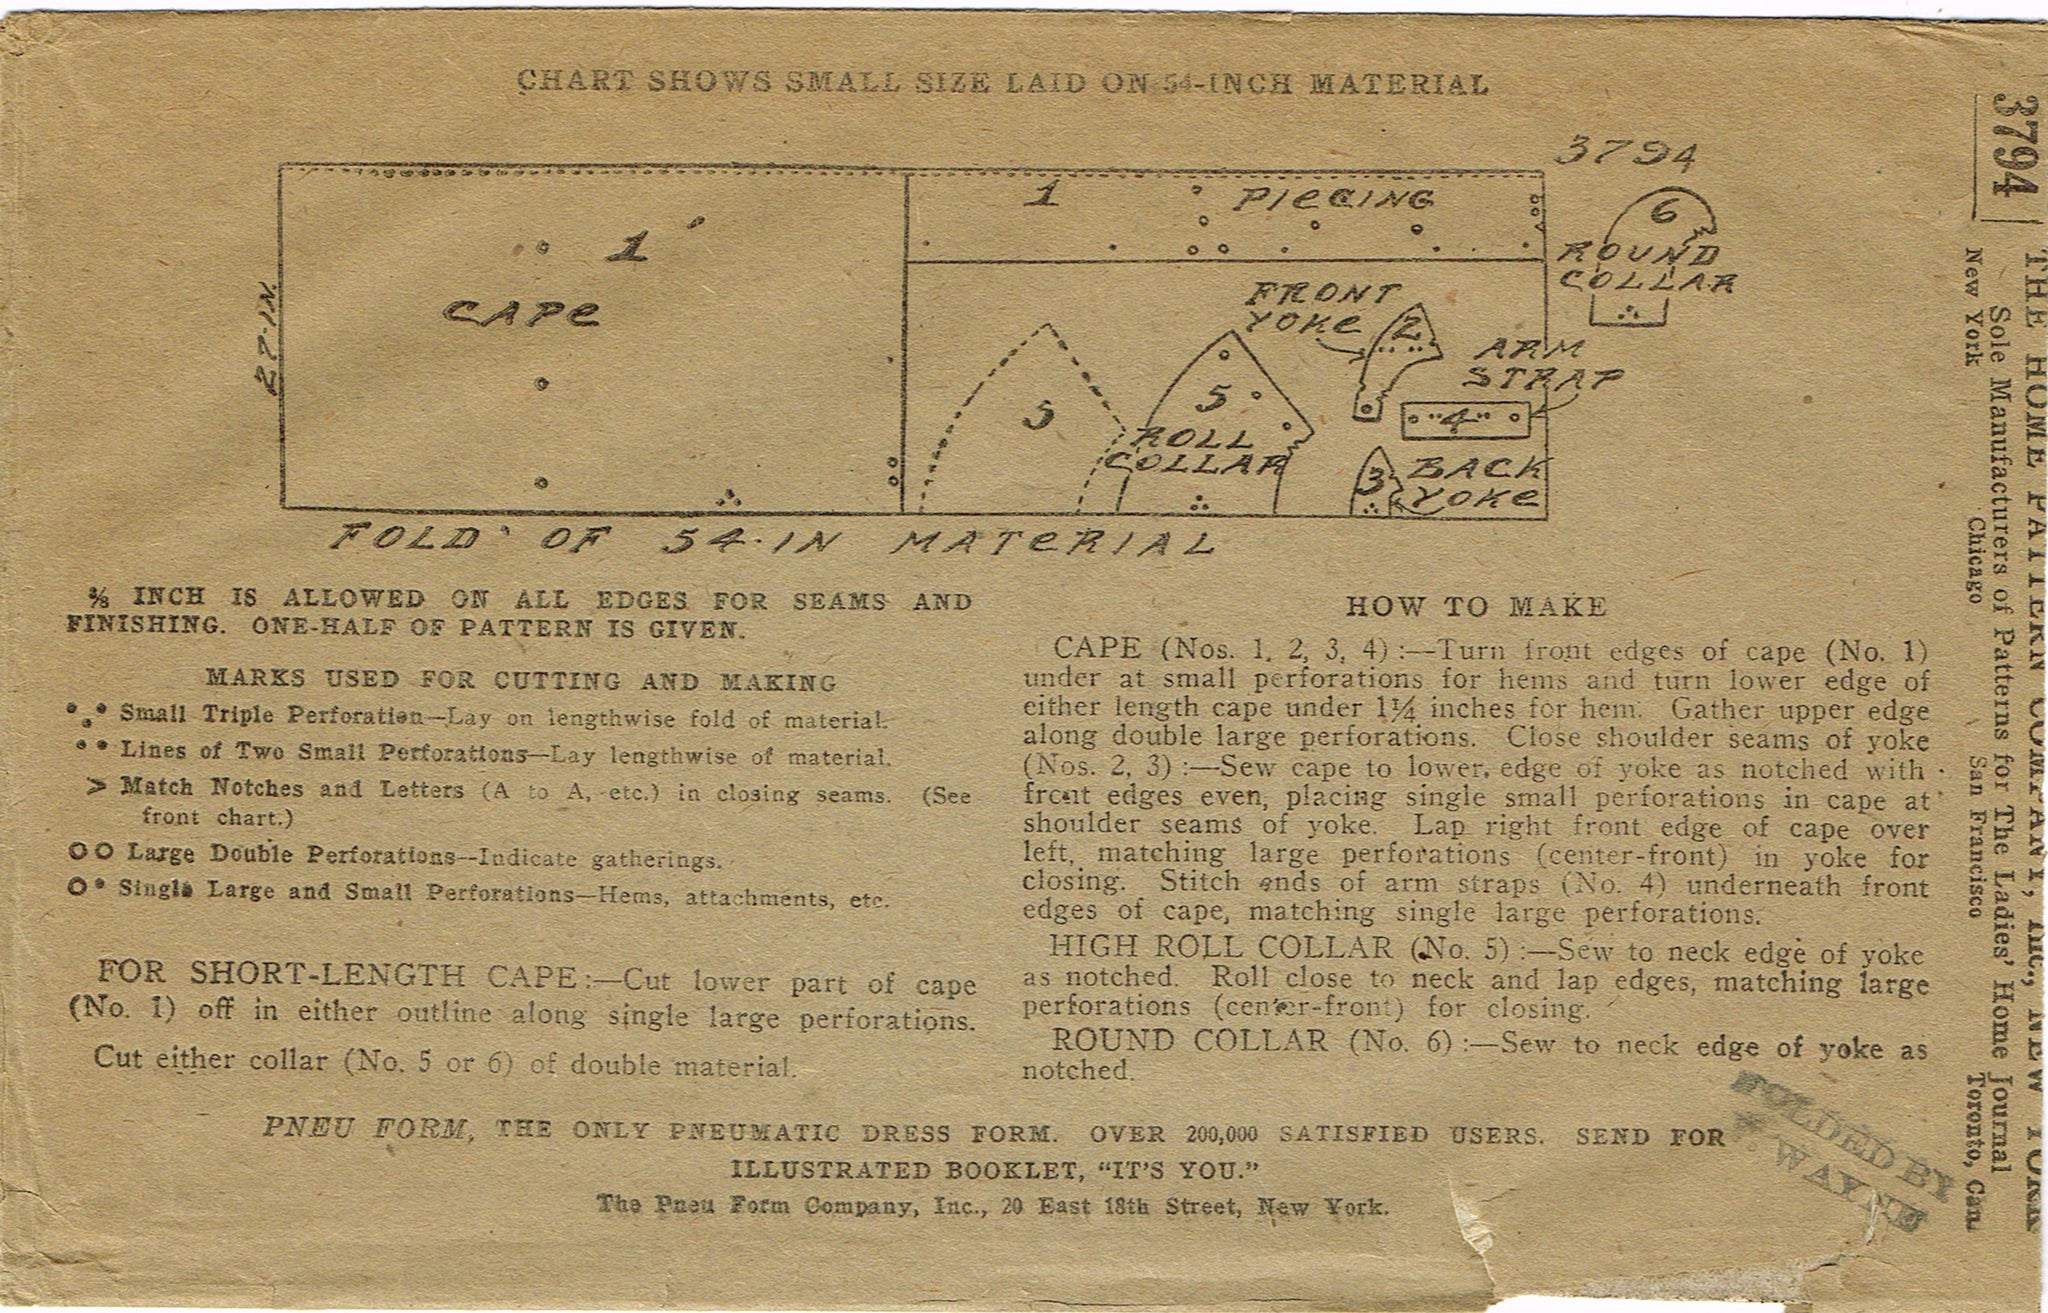 CHART SHOWS SMALL SIZE LAID ON 54-INCH MATERIAL
3794
1
PIECING
6
ROUND
COLLAR
1
CAPE
27-IN.
FRONT
YOKE
2
ARM
STRAP
5
5
ROLL
COLLAR
4
3
BACK
YOKE
FOLD OF 54-IN MATERIAL
⅜ INCH IS ALLOWED ON ALL EDGES FOR SEAMS AND
FINISHING. ONE-HALF OF PATTERN IS GIVEN.
MARKS USED FOR CUTTING AND MAKING
Small Triple Perforation—Lay on lengthwise fold of material.
Lines of Two Small Perforations—Lay lengthwise of material.
> Match Notches and Letters (A to A, etc.) in closing seams. (See
front chart.)
Large Double Perforations—Indicate gatherings.
Single Large and Small Perforations—Hems, attachments, etc.
FOR SHORT-LENGTH CAPE:—Cut lower part of cape
(No. 1) off in either outline along single large perforations.
Cut either collar (No. 5 or 6) of double material.
HOW TO MAKE
CAPE (Nos. 1, 2, 3, 4):—Turn front edges of cape (No. 1)
under at small perforations for hems and turn lower edge of
either length cape under 1¼ inches for hem. Gather upper edge
along double large perforations. Close shoulder seams of yoke
(Nos. 2, 3):—Sew cape to lower edge of yoke as notched with
front edges even, placing single small perforations in cape at
shoulder seams of yoke. Lap right front edge of cape over
left, matching large perforations (center-front) in yoke for
closing. Stitch ends of arm straps (No. 4) underneath front
edges of cape, matching single large perforations.
HIGH ROLL COLLAR (No. 5):—Sew to neck edge of yoke
as notched. Roll close to neck and lap edges, matching large
perforations (center-front) for closing.
ROUND COLLAR (No. 6):—Sew to neck edge of yoke as
notched.
PNEU FORM, THE ONLY PNEUMATIC DRESS FORM. OVER 200,000 SATISFIED USERS. SEND FOR
ILLUSTRATED BOOKLET, "IT'S YOU."
The Pneu Form Company, Inc., 20 East 18th Street, New York.
FOLDED BY
WAYNE
3794
THE HOME PATTERN COMPANY, Inc., NEW YORK
Sole Manufacturers of Patterns for The Ladies' Home Journal
New York Chicago San Francisco Toronto, Can.